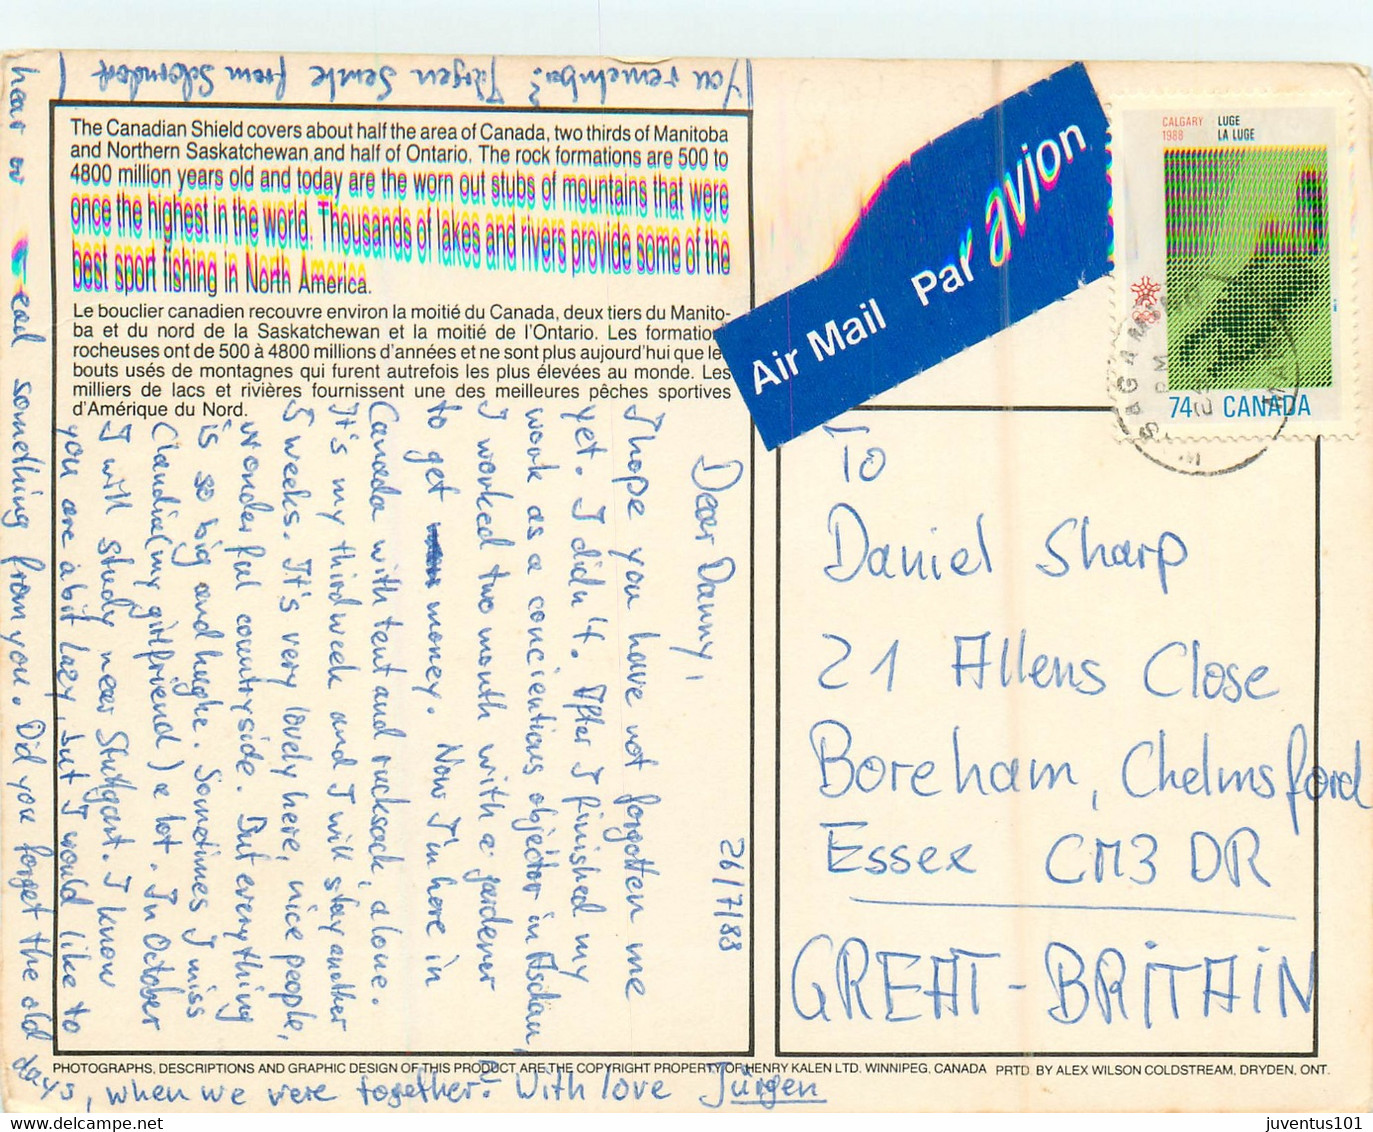 (You remember? Jürgen Senke from Schorndorf)
The Canadian Shield covers about half the area of Canada, two thirds of Manitoba
and Northern Saskatchewan and half of Ontario. The rock formations are 500 to
4800 million years old and today are the worn out stubs of mountains that were
once the highest in the world. Thousands of lakes and rivers provide some of the
best sport fishing in North America.
Le bouclier canadien recouvre environ la moitié du Canada, deux tiers du Manito-
ba et du nord de la Saskatchewan et la moitié de l'Ontario. Les formations
rocheuses ont de 500 à 4800 millions d'années et ne sont plus aujourd'hui que les
bouts usés de montagnes qui furent autrefois les plus élevées au monde. Des
milliers de lacs et rivières fournissent une des meilleures pêches sportives
d'Amérique du Nord.
26/7/88
Dear Danny,
I hope you have not forgotten me
yet. I didn't. After I finished my
work as a concientious objector in
I worked two month with a gardener
to get money. Now I'm here in
Canada with tent and rucksack, alone.
It's my third week and I will stay another
5 weeks. It's very lovely here, nice people,
wonderful countryside. But everything
is so big and hughe. Sometimes I miss
Claudia (my girlfriend) a lot. In October
I will study near Stuttgart. I know
you are a bit lazy, but I would like to
hear or read something from you. Did you forget the old
days, when we were together? With love Jürgen
Air Mail Par avion
CALGARY
1988
LUGE
LA LUGE
74 CANADA
To
Daniel Sharp
21 Allens Close
Boreham, Chelmsford
Essex CM3 DR
GREAT-BRITAIN
PHOTOGRAPHS, DESCRIPTIONS AND GRAPHIC DESIGN OF THIS PRODUCT ARE THE COPYRIGHT PROPERTY OF HENRY KALEN LTD. WINNIPEG, CANADA PRTD. BY ALEX WILSON COLDSTREAM, DRYDEN, ONT.
juventus101